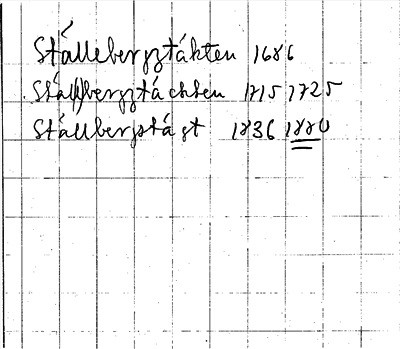 Stállebergztákten 1686
Stál(l)bergztáckten 1715 1725
Stállbergstágt 1836 1880